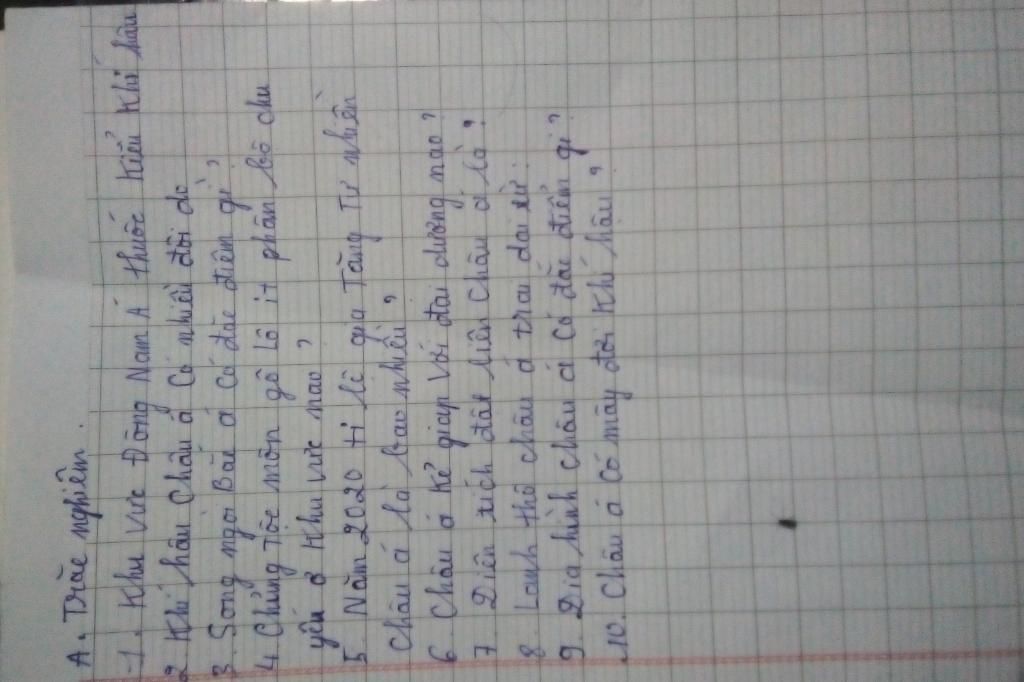 A. Trắc nghiệm.
1. Khu vực Đông Nam Á thuộc kiểu khí hậu
2 Khí hậu châu á có nhiều đới do
3. Sông ngòi Bắc á có đặc điểm gì?
4 Chủng tộc môn gô lô ít phân bố chủ
yếu ở khu vực nào?
5. Năm 2020 tỉ lệ gia Tăng Tự nhiên
Châu á là bao nhiêu?
6. Châu á kề giáp với đại dương nào?
7. Diện tích đất liền châu á là?
8. Lãnh thổ châu á trải dài từ:
9. Địa hình châu á có đặc điểm gì?
10. Châu á có mấy đới khí hậu?